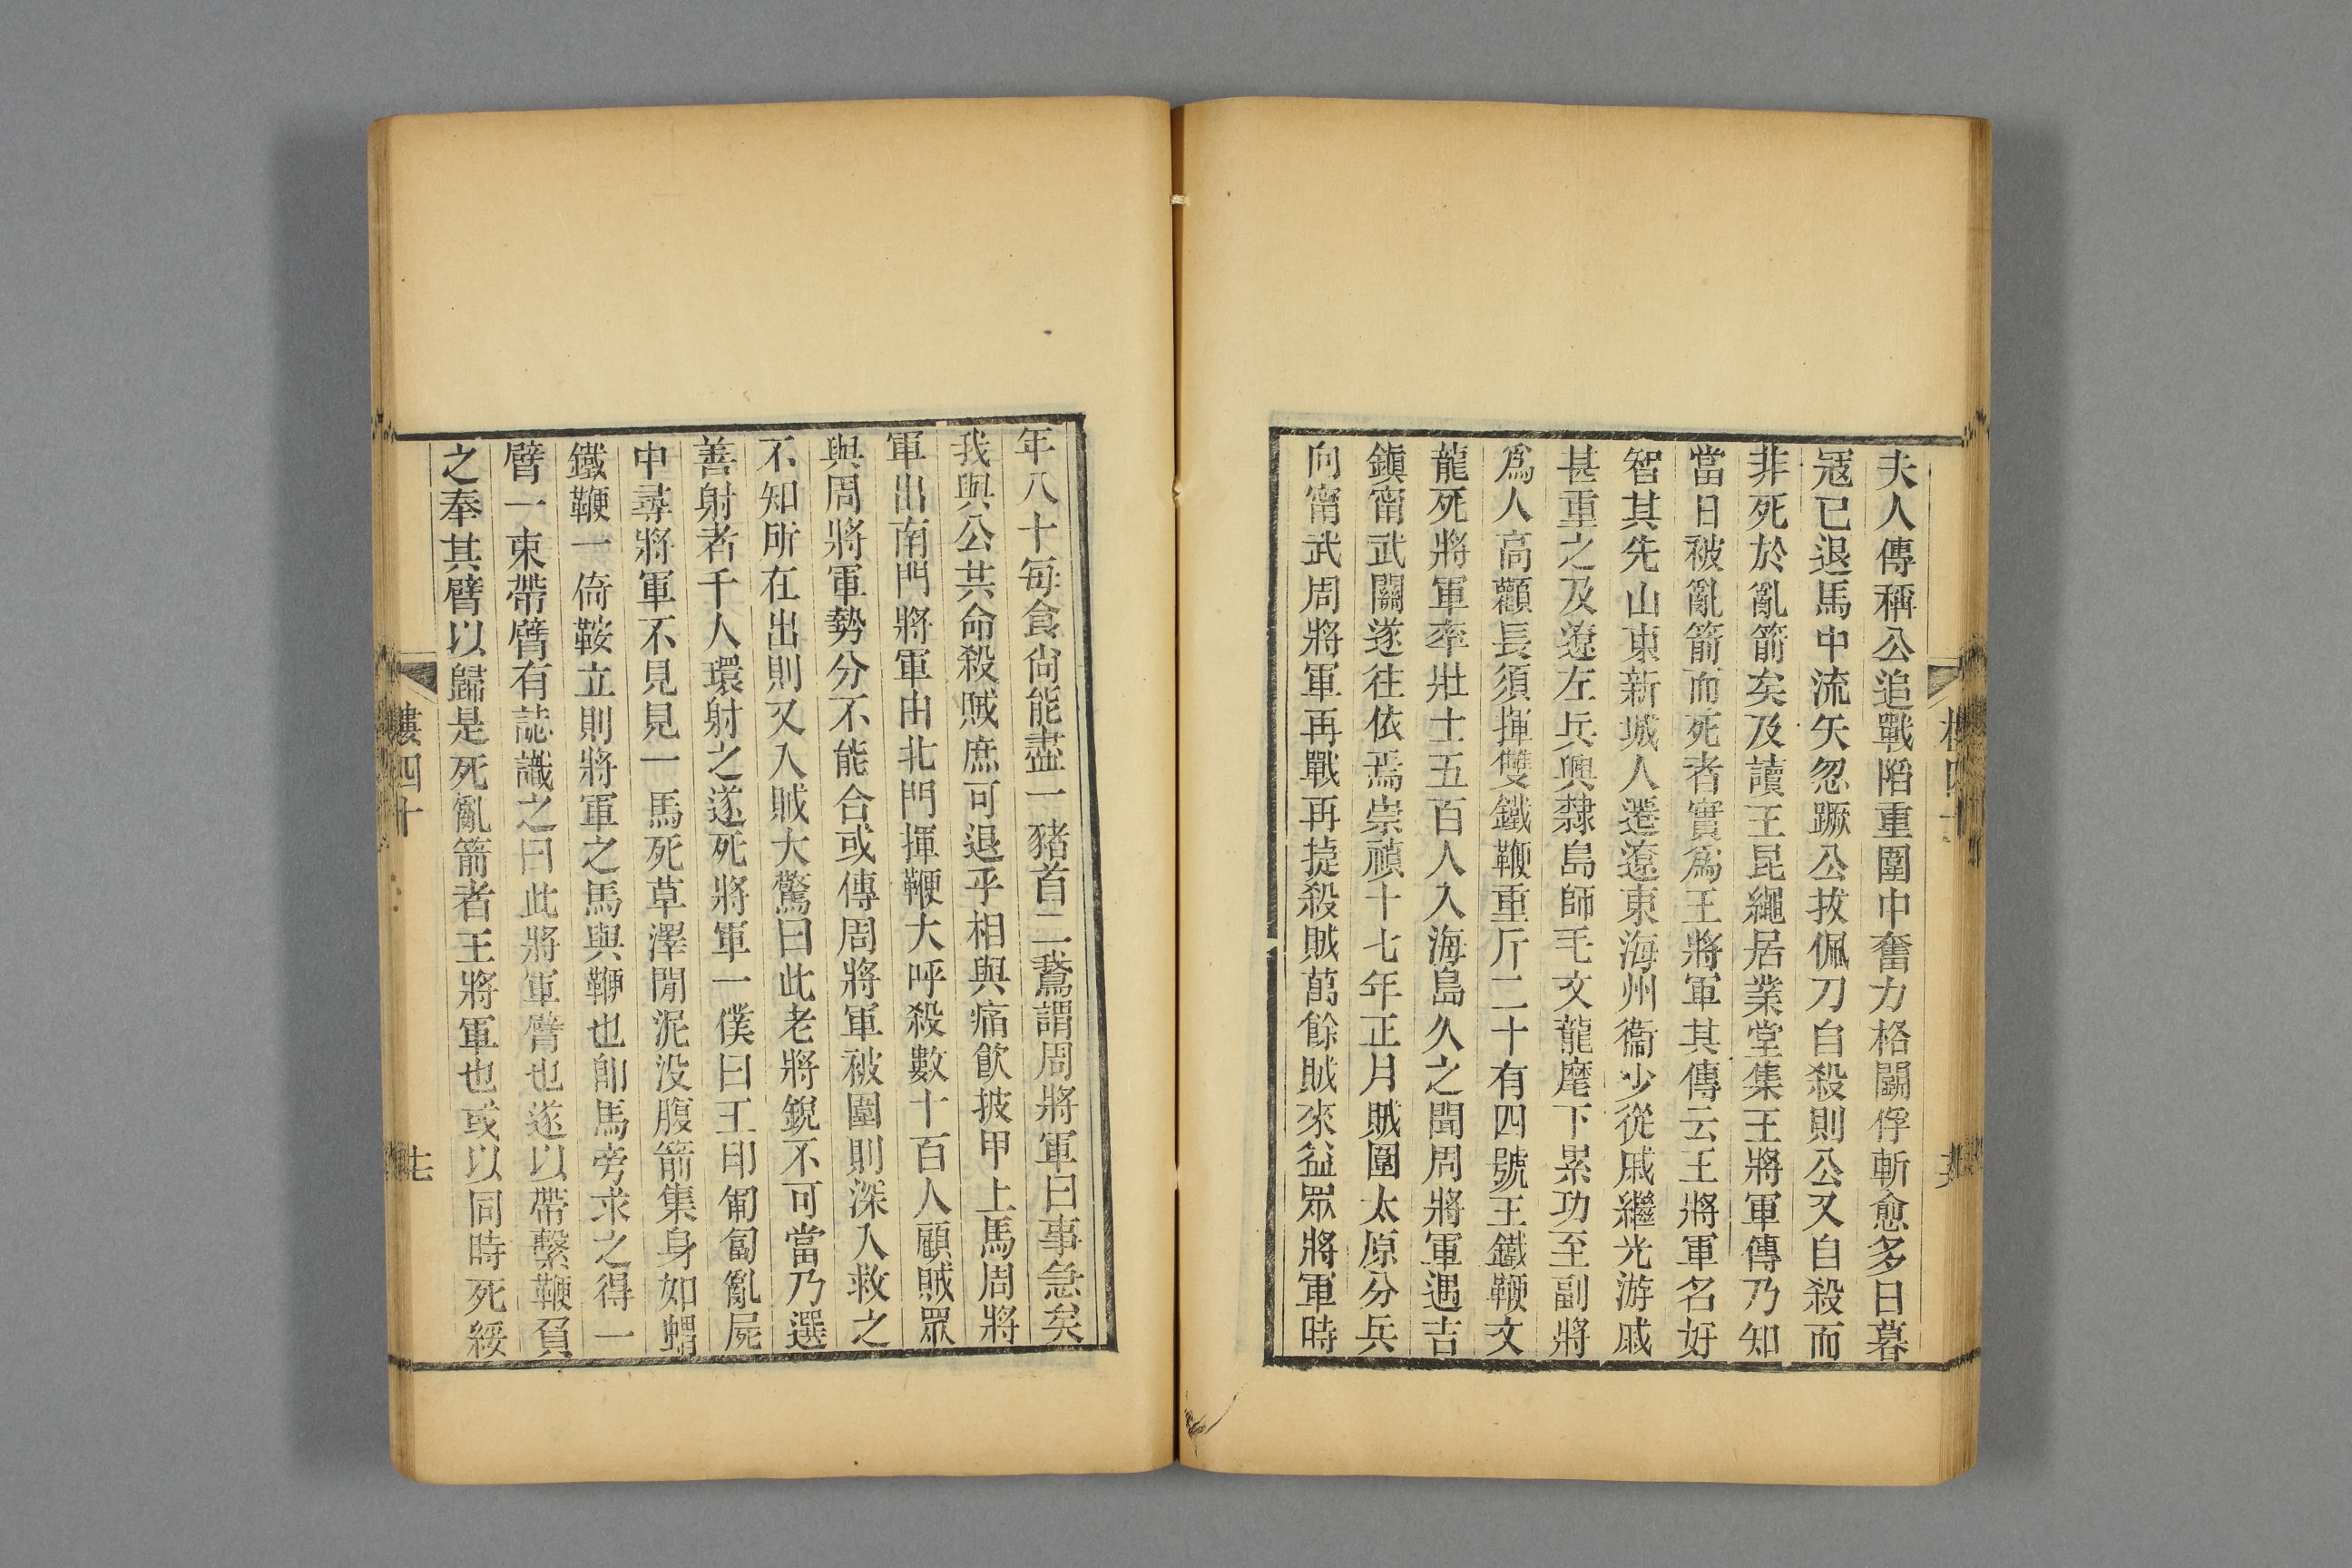 夫人傳稱公追戰陷重圍中奮力格鬬俘斬愈多日暮
冦已退馬中流矢忽蹶公拔佩刀自殺則公又自殺而
非死於亂箭矣及讀王昆繩居業堂集王將軍傳乃知
當日被亂箭而死者實爲王將軍其傳云王將軍名好
智其先山東新城人遷遼東海州衞少從戚繼光游戚
甚重之及遼左兵興隸島師毛文龍麾下累功至副將
爲人高顴長須揮雙鐵鞭重斤二十有四號王鐵鞭文
龍死將軍率壯士五百人入海島久之聞周將軍遇吉
鎭甯武關遂往依焉崇禎十七年正月賊圍太原分兵
向甯武周將軍再戰再捷殺賊萬餘賊來益眾將軍時
年八十每食尙能盡一豬首二鵞謂周將軍曰事急矣
我與公共命殺賊庶可退乎相與痛飮披甲上馬周將
軍出南門將軍由北門揮鞭大呼殺數十百人顧賊眾
與周將軍勢分不能合或傳周將軍被圍則深入救之
不知所在出則又入賊大驚曰此老將銳不可當乃選
善射者千人環射之遂死將軍一僕曰王印匍匐亂屍
中尋將軍不見見一馬死草澤閒泥没腹箭集身如蝟
鐵鞭一倚鞍立則將軍之馬與鞭也卽馬旁求之得一
臂一束帶臂有誌識之曰此將軍臂也遂以帶繫鞭負
之奉其臂以歸是死亂箭者王將軍也或以同時死綏
樓四十